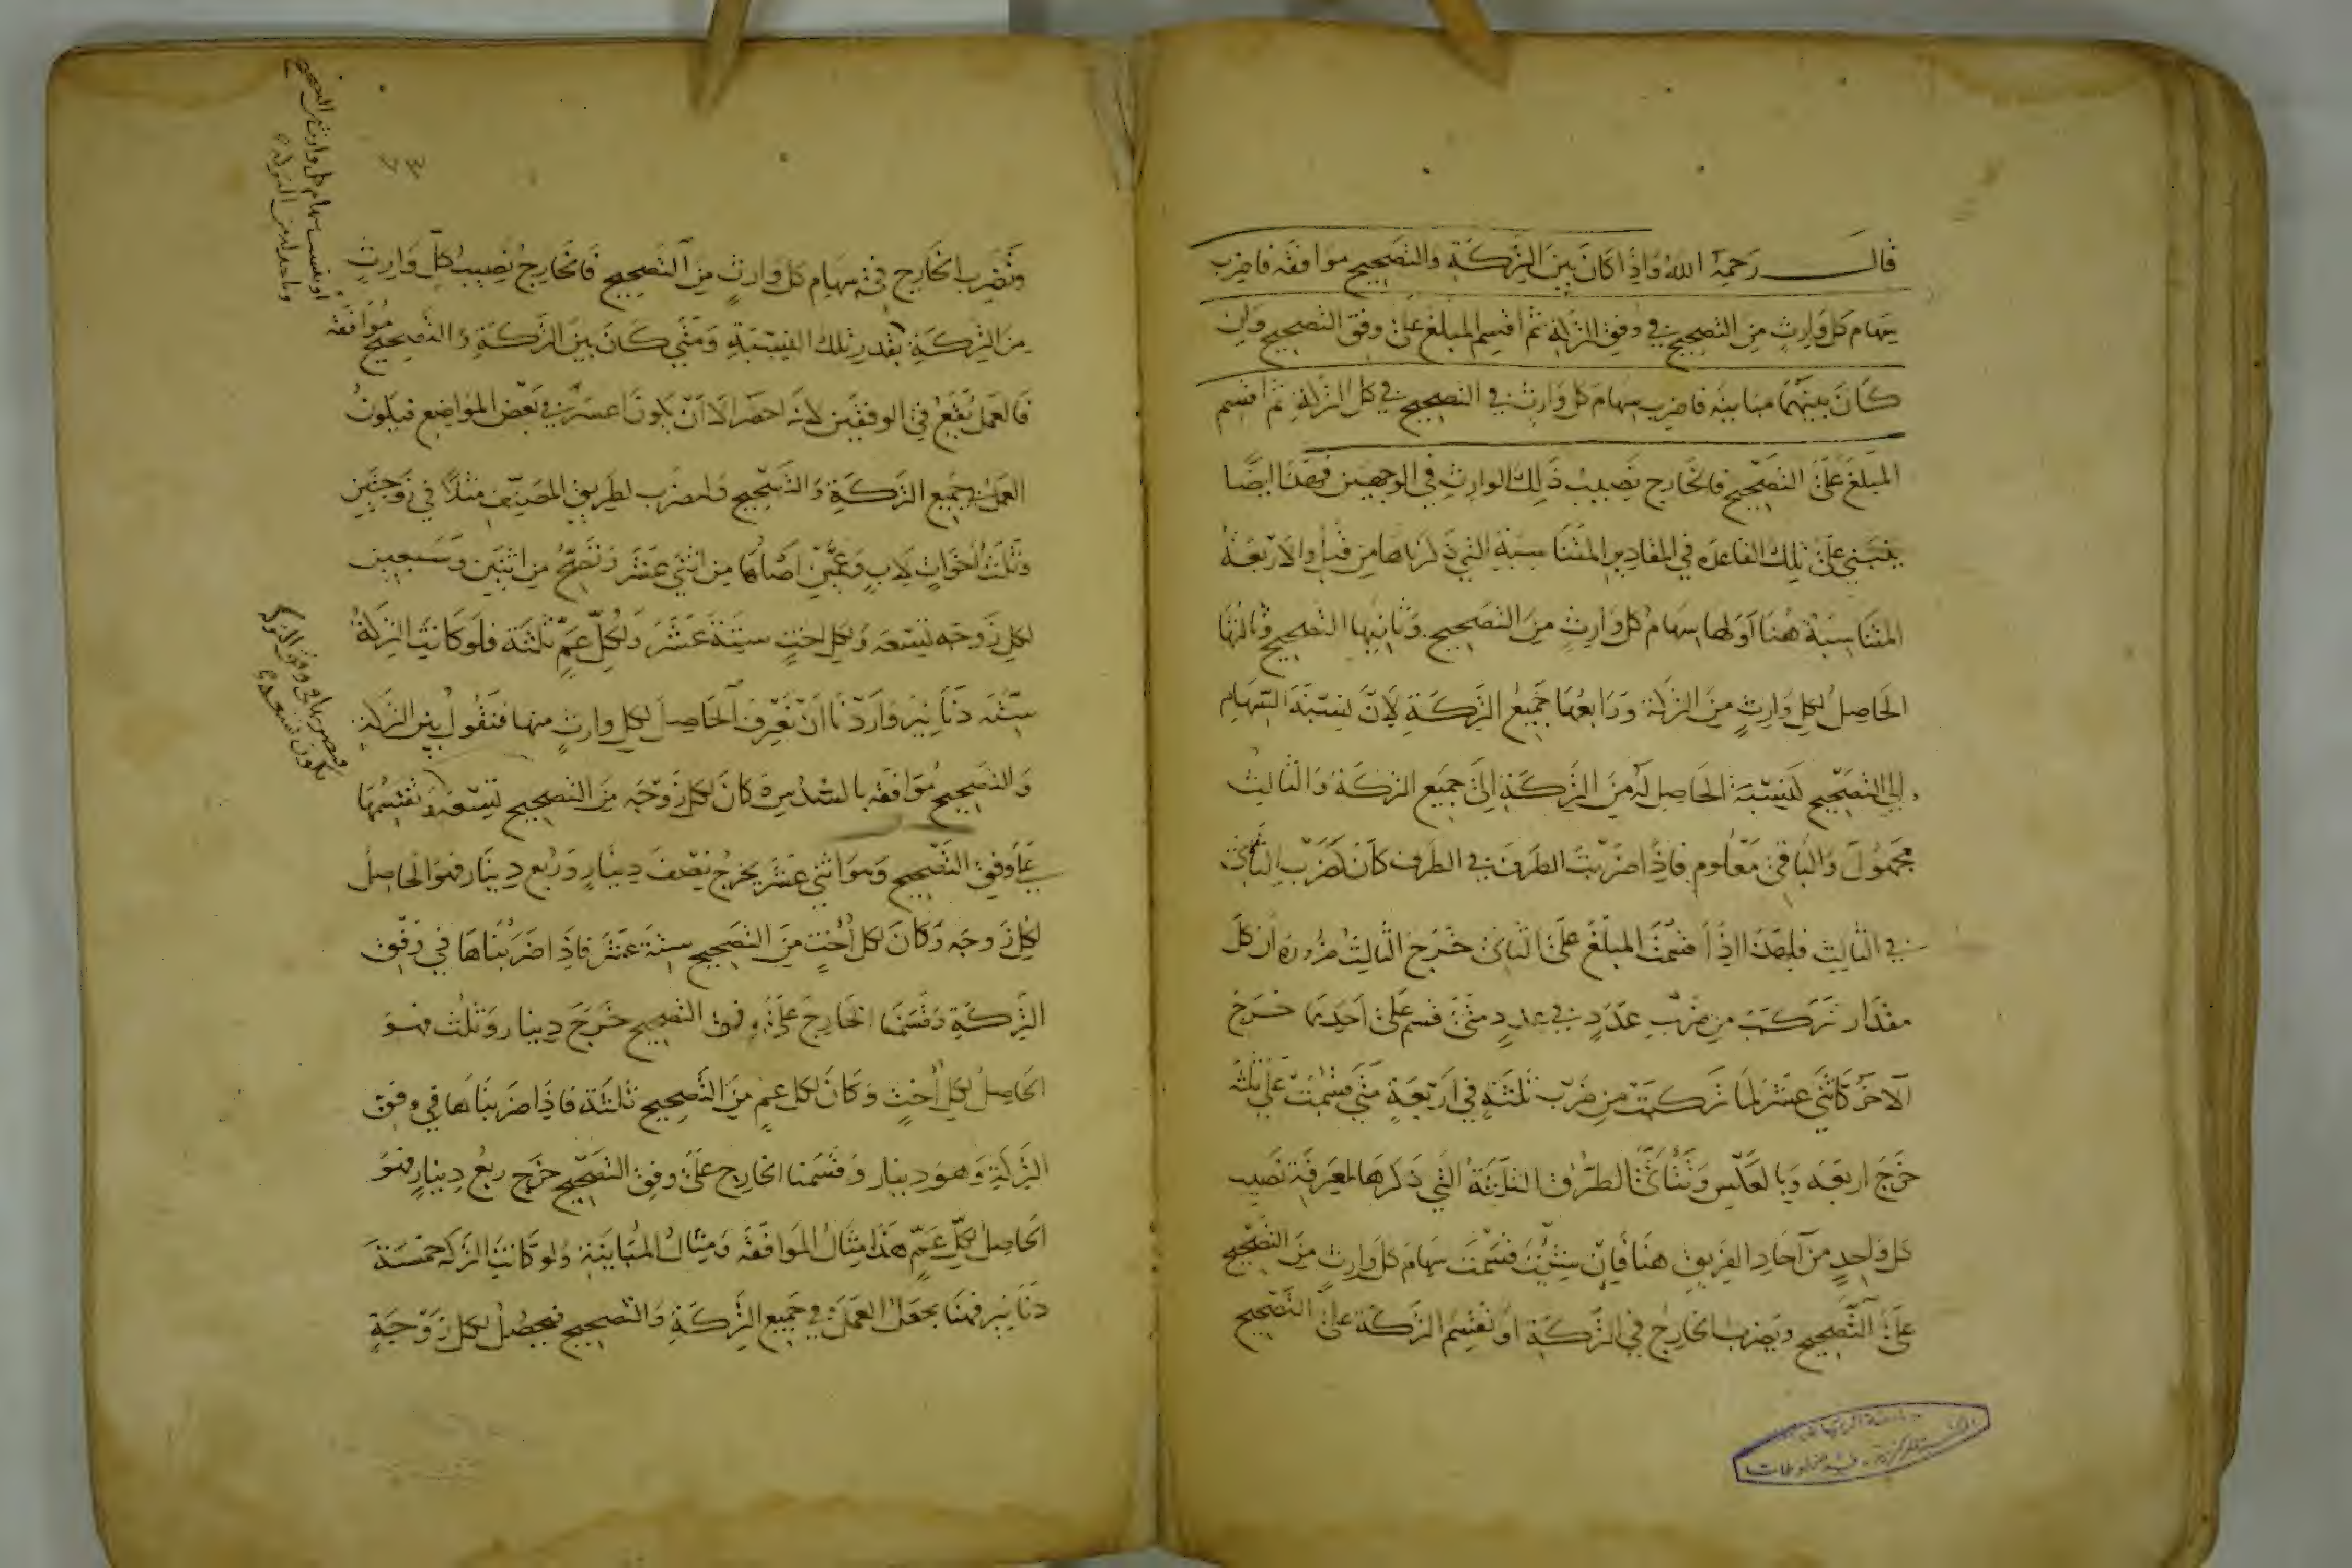 قال رحمه الله واذا كان بين التركة والتصحيح موافقه فاضرب
سهام كل وارث من التصحيح في وفق التركة ثم اقسم المبلغ على وفق التصحيح وان
كان بينهما مباينه فاضرب سهام كل وارث في التصحيح في كل التركة ثم اقسم
المبلغ على التصحيح فالخارج نصيب ذلك الوارث في الوجهين فهذا ايضا
يبتني على تلك القاعده في المقادير المتناسبة التي ذكرناها من قبل والاربعة
المتناسبة هنا اولها سهام كل وارث من التصحيح وثانيها التصحيح وثالثها
الحاصل لكل وارث من التركة ورابعها جميع التركة لان نسبة السهام
الى التصحيح كنسبة الحاصل له من التركة الى جميع التركة والثالث
مجهول والباقي معلوم فاذا ضربت الطرف في الطرف كان كضرب الثاني
في الثالث فلهذا اذا قسمت المبلغ على الثاني خرج الثالث ضرورة ان كل
مقدار تركب من ضرب عدد في عدد متى قسم على احدهما خرج
الآخر كاثني عشر لما تركبت من ضرب ثلثة في اربعة متى قسمت على ثلثه
خرج اربعه وبالعكس الطرق الثلثة التي ذكرها لمعرفة نصيب
كل واحد من آحاد الفريق هنا فان شئت قسمت سهام كل وارث من التصحيح
على التصحيح وتضرب الخارج في التركة او تقسم التركة على التصحيح
٧٣
وتضرب الخارج في سهام كل وارث من التصحيح فالخارج نصيب كل وارث
من التركة بقدر تلك النسبة ومتى كان بين التركة والتصحيح موافقه
فالعمل يقع في الوفقين لانه احصر الا ان يكون اعسر في بعض المواضع فيكون
العمل في جميع التركة والتصحيح لطريق المصنف مثلا في زوجتين
وثلث اخوات لاب وعمين اصلها من اثني عشر وتصح من اثنين وسبعين
لكل زوجه تسعه ولكل اخت ستة عشر ولكل عم ثلثة فلو كانت التركة
ستّه دنانير واردنا ان نعرف الحاصل لكل وارث منها فنقول بين التركة
والتصحيح موافقه بالسدس كان لكل زوجه من التصحيح تسعه نقسمها
على وفق التصحيح وهو اثني عشر يخرج نصف دينار وربع دينار فهو الحاصل
لكل زوجه وكان لكل أخت من التصحيح ستة عشر فاذا ضربناها في وفق
التركة وقسمنا الخارج على وفق التصحيح خرج دينار وثلث فهو
الحاصل لكل أخت وكان لكل عم من التصحيح ثلثة فاذا ضربناها في وفق
التركة وهو دينار وقسمنا الخارج على وفق التصحيح خرج ربع دينار فهو
الحاصل لكل عم هذا مثال الموافقه ومثال المباينة ولو كانت التركه خمسة
دنانير فهنا نجعل العمل في جميع التركة والتصحيح فيحصل لكل زوجة